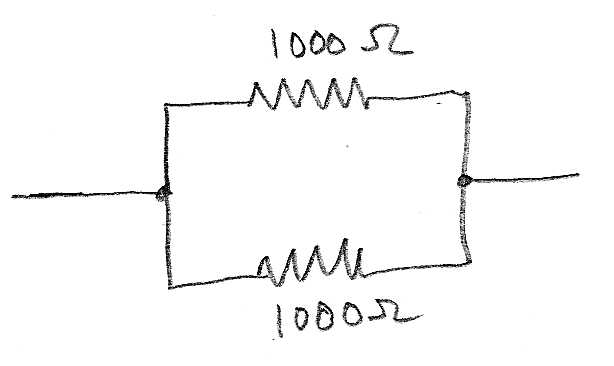 1000 Ω
1000 Ω